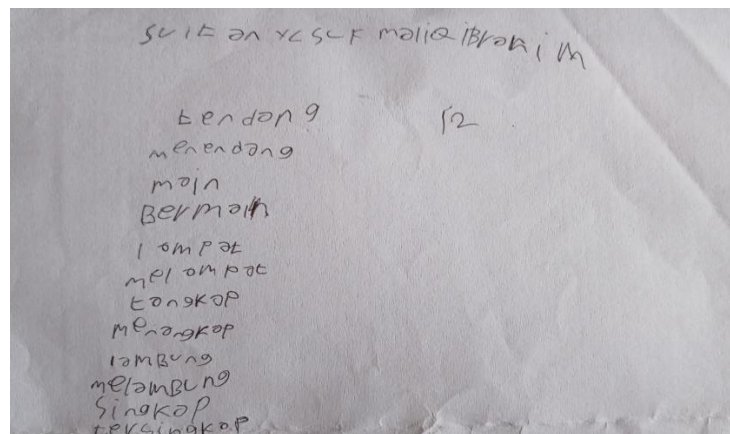 sultan yusuf maliq iBrahim
tendang 52
menendang
main
Bermain
lompat
melompat
tangkap
menangkap
lamBung
melamBung
Singkap
tersingkap